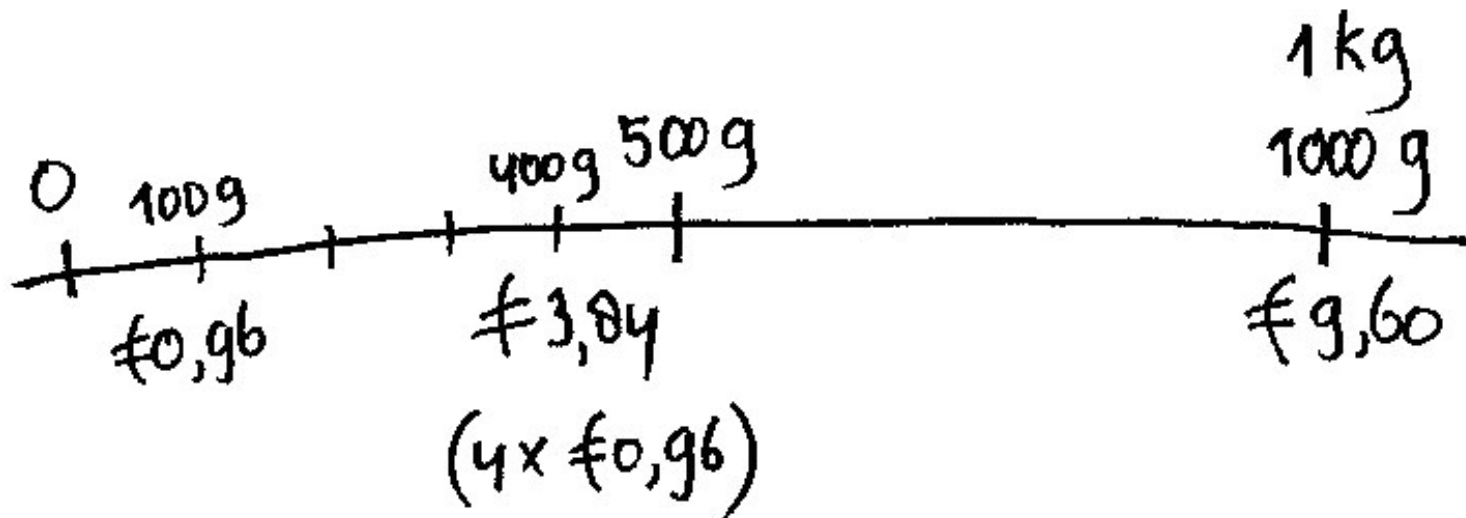 1 kg
0 100g 400g 500g 1000 g
€0,96 €3,84 €9,60
(4x €0,96)